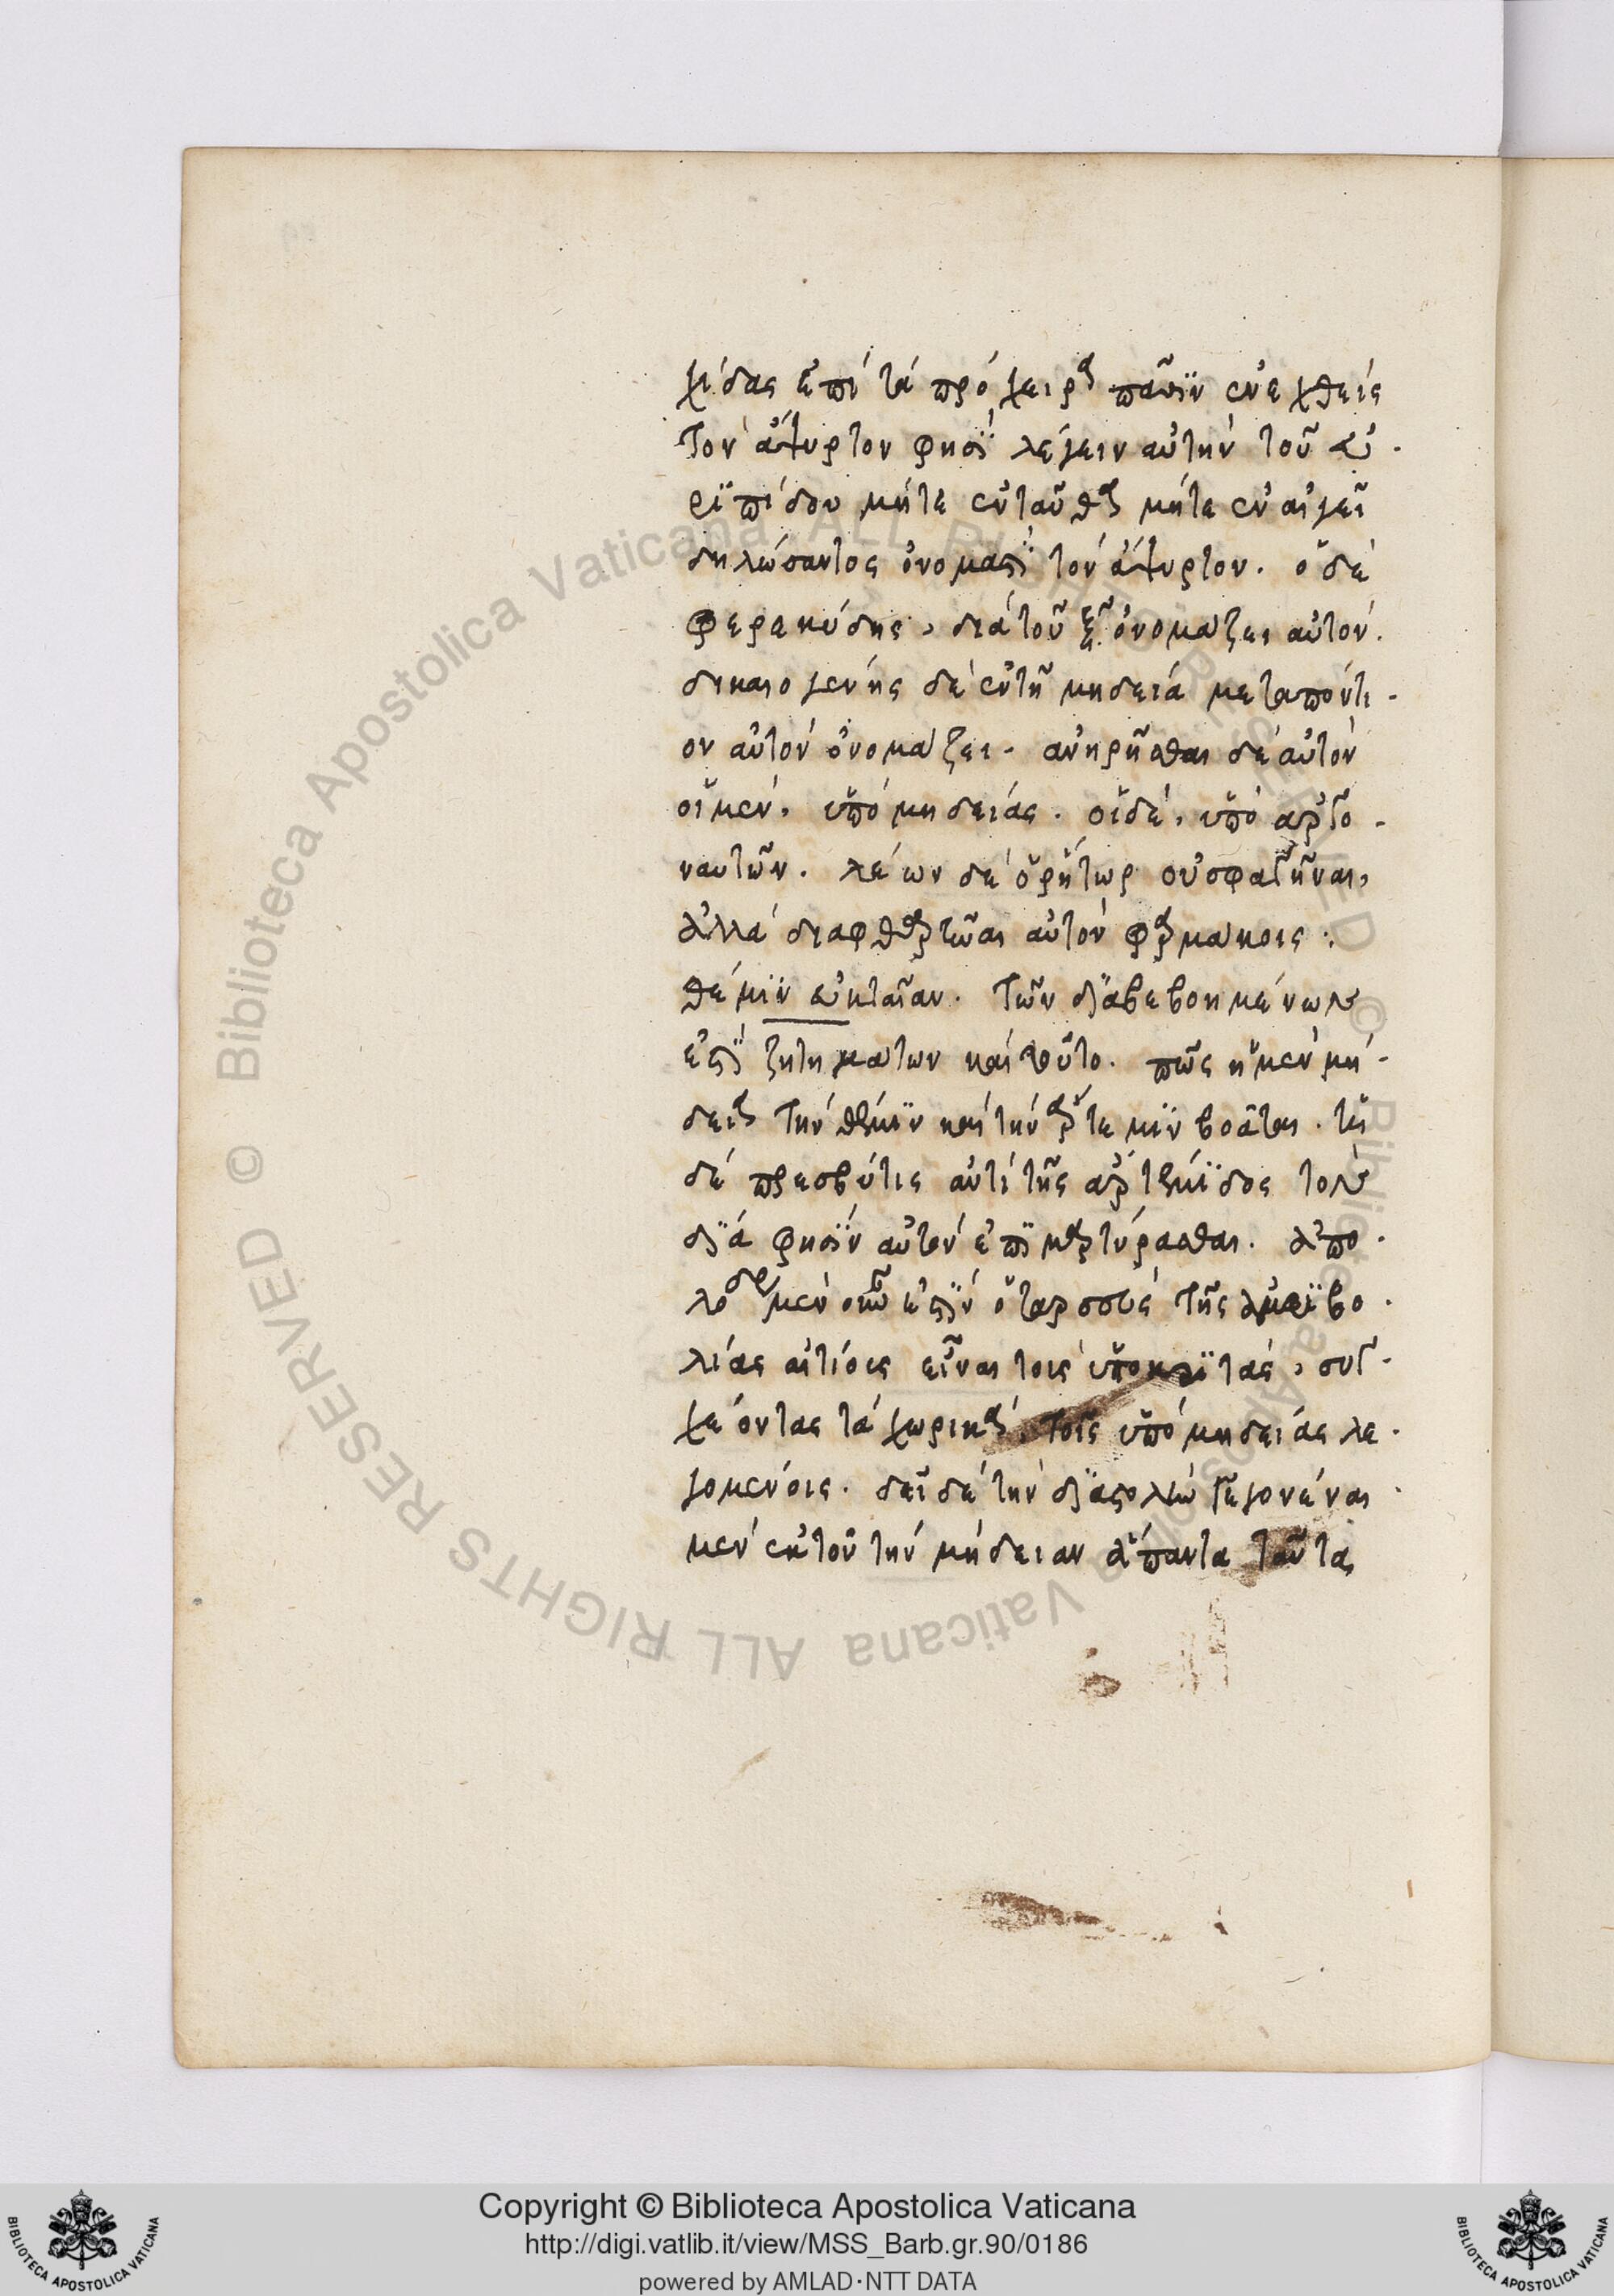 χίδας ἐπὶ τὰ πρόχειρα πᾶσϊν ἐνεχθεὶς
τὸν ἄψυρτον φησῒ λέγειν αὐτὴν τοῦ εὐ-
ρϊπίδου μήτε ἐνταῦθα μήτε ἐν αἰγεῖ
δηλώσαντος ὀνομαστῒ τὸν ἄψυρτον. ὁ δὲ
φερεκύδης, διὰ τοῦ ξ ὀνομάζει αὐτόν.
δικαιογένης δὲ ἐν τῇ μηδείᾳ μεταπόντι-
ον αὐτὸν ὀνομάζει. ἀνῃρῆσθαι δὲ αὐτὸν
οἱ μὲν, ὑπὸ μηδείας. οἱ δὲ, ὑπὸ ἀργο-
ναυτῶν. λέων δὲ ὁ ῥήτωρ οὐ σφαγῆναι,
ἀλλὰ διαφθαρεῖναι αὐτὸν φαρμάκοις:
θέμϊν εὐκταίαν. τῶν διαβεβοημένων
ἐστῒ ζητημάτων καὶ τοῦτο. πῶς ἡ μὲν μή-
δεια τὴν θέμϊν καὶ τὴν ἄρτεμϊν βοᾶται. ἡ
δὲ πρεσβύτις ἀντὶ τῆς ἀρτέμϊδος τὸν
δία φησῒν αὐτὴν ἐπϊμαρτύρασθαι. ἀπο-
λόδωρος μὲν οὖν ἐστῒν ὁ ταρσεὺς τῆς ἀμφϊβο-
λίας αἰτίους εἶναι τοὺς ὑποκρϊτάς, συγ-
χέοντας τὰ χορικὰ, τοῖς ὑπὸ μηδείας λε-
γομένοις. δεῖ δὲ τὴν διαστολὴν γεγονέναι
μὲν ἐκ τοῦ τὴν μήδειαν ἅπαντα ταῦτα
Copyright © Biblioteca Apostolica Vaticana
http://digi.vatlib.it/view/MSS_Barb.gr.90/0186
powered by AMLAD·NTT DATA